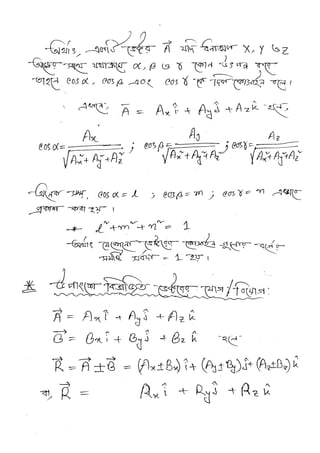 অর্থাৎ, একটি ভেক্টর A⃗ যদি ধনাত্মক X, Y ও Z
অক্ষের সাথে যথাক্রমে α, β ও γ কোন উৎপন্ন করে
তাহলে cosα, cosβ এবং cosγ কে দিক কোসাইন বলে।
এখানে, A⃗ = Aₓî + Aᵧĵ + A_z k̂ হলে,
cosα = Aₓ/√(Aₓ²+Aᵧ²+A_z²) ; cosβ = Aᵧ/√(Aₓ²+Aᵧ²+A_z²) ; cosγ = A_z/√(Aₓ²+Aᵧ²+A_z²)
অনেক সময়, cosα = l ; cosβ = m ; cosγ = n এভাবে
প্রকাশ করা হয়।
* l²+m²+n² = 1
অর্থাৎ যেকোনো ভেক্টরের কোসাইন গুলোর বর্গের
সমষ্টি সর্বদা = 1 হয়।
* উপাংশে বিভাজিত ভেক্টরের যোগ/বিয়োগ:
A⃗ = Aₓî + Aᵧĵ + A_z k̂
B⃗ = Bₓî + Bᵧĵ + B_z k̂ হলে
R⃗ = A⃗ ± B⃗ = (Aₓ±Bₓ)î + (Aᵧ±Bᵧ)ĵ + (A_z±B_z)k̂
বা, R⃗ = Rₓî + Rᵧĵ + R_z k̂